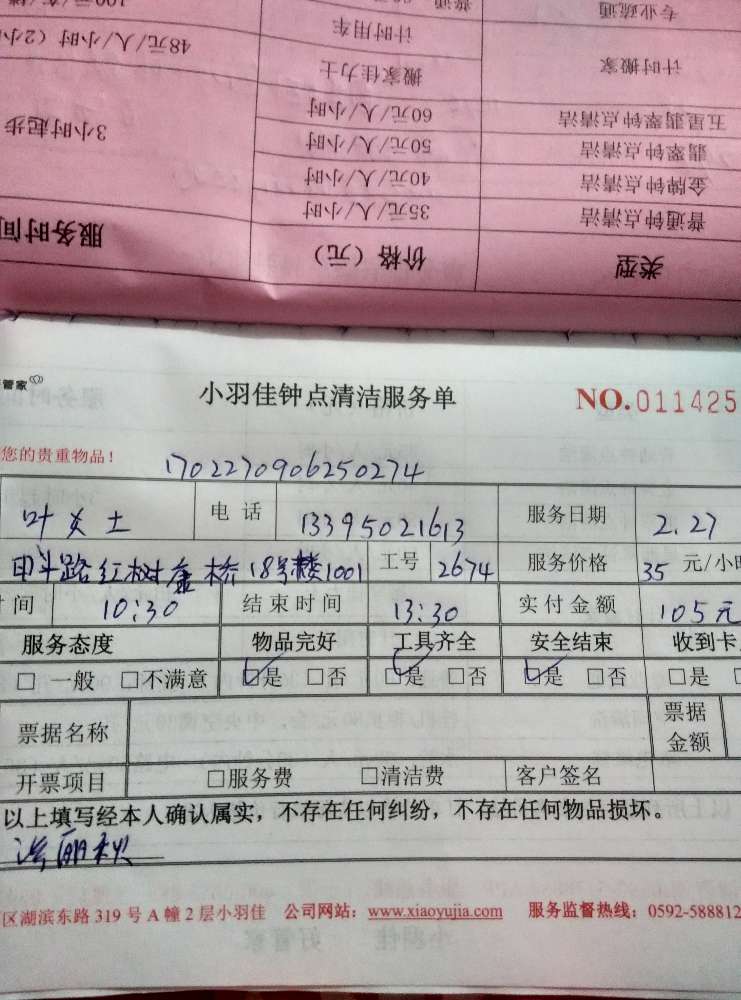 专业疏通 普通 100元/车/楼
计时搬家 计时用车
搬家佳力士 48元/人/小时（2小
五星翡翠钟点清洁 60元/人/小时
翡翠钟点清洁 50元/人/小时 3小时起步
金牌钟点清洁 40元/人/小时
普通钟点清洁 35元/人/小时
类型 价格（元） 服务时间
管家
小羽佳钟点清洁服务单 NO.011425
您的贵重物品！ 1702270906250274
叶女士 电话 13395021613 服务日期 2.27
路红树康桥18号楼1001 工号 2674 服务价格 35 元/小时
时间 10:30 结束时间 13:30 实付金额 105元
服务态度 物品完好 工具齐全 安全结束 收到卡
□一般 □不满意 □是 □否 □是 □否 □是 □否 □是
票据名称 票据金额
开票项目 □服务费 □清洁费 客户签名
以上填写经本人确认属实，不存在任何纠纷，不存在任何物品损坏。
区湖滨东路 319 号 A 幢 2 层小羽佳 公司网站：www.xiaoyujia.com 服务监督热线：0592-588812